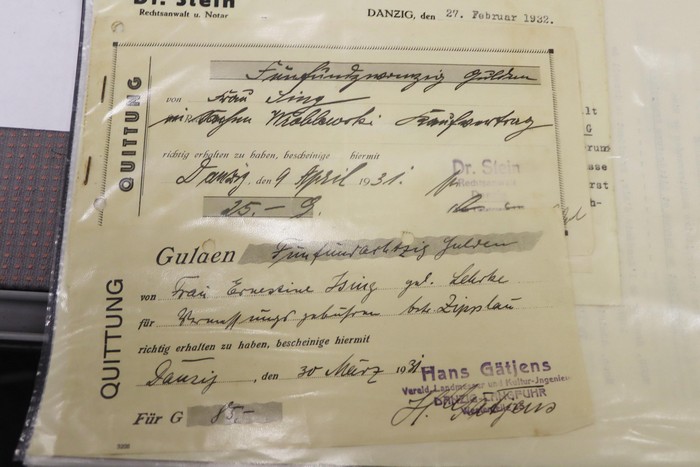 Dr. Stein
Rechtsanwalt u. Notar
DANZIG, den 27. Februar 1932.
QUITTUNG
Fünfundzwanzig Gulden
von Frau Ising
in Sachen Kaufvertrag
richtig erhalten zu haben, bescheinige hiermit
Danzig, den 9 April 1931.
Dr. Stein
Rechtsanwalt
25.- G.
QUITTUNG
Gulden Fünfundachtzig Gulden
von Frau Ernestine Ising geb. Lehrke
für Vermessungsgebühren betr. Zipplau
richtig erhalten zu haben, bescheinige hiermit
Danzig, den 30 März 1931.
Hans Gätjens
Vereid. Landmesser und Kultur-Ingenieu
DANZIG-LANGFUHR
H. Gätjens
Für G 85.-